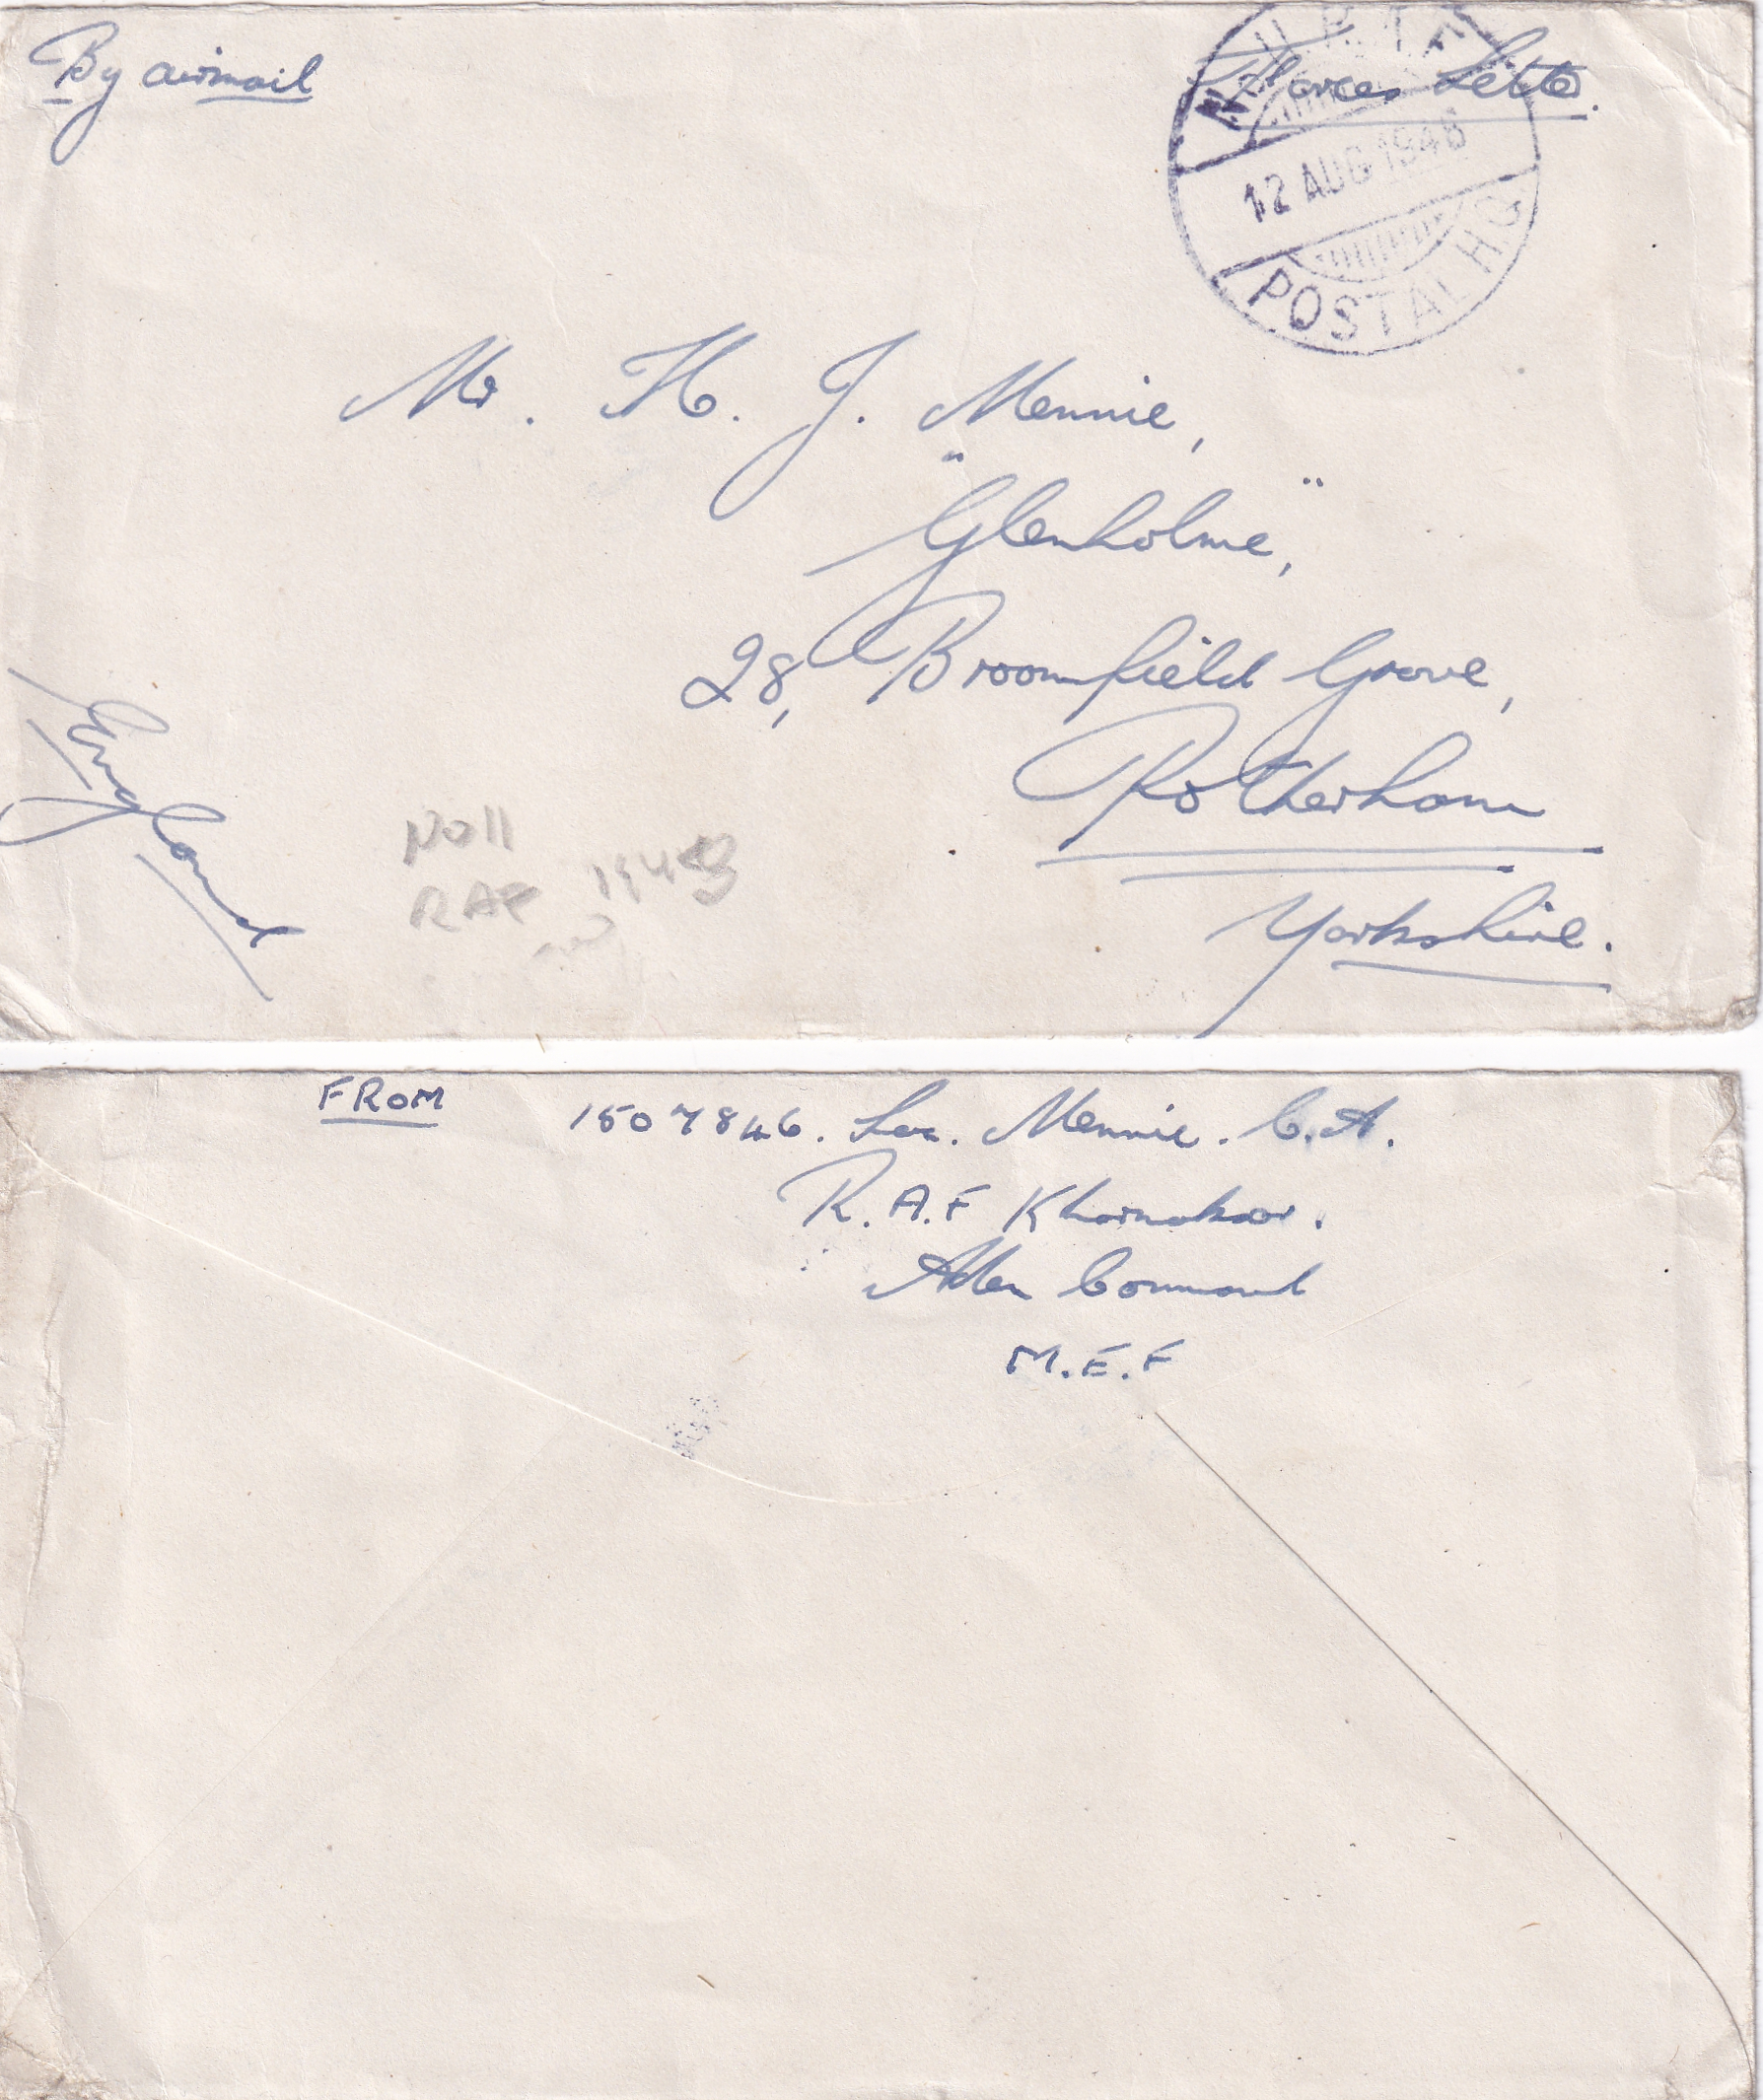 By airmail
Forces Letter.
12 AUG 1946
POSTAL HQ
Mr. H. J. Mennie,
"Glenholme,"
28, Broomfield Grove,
Rotherham
Yorkshire.
England
No 11
RAF
FROM 1507846. Lac. Mennie. C.A.
R.A.F Khormaksar.
Aden Command
M.E.F